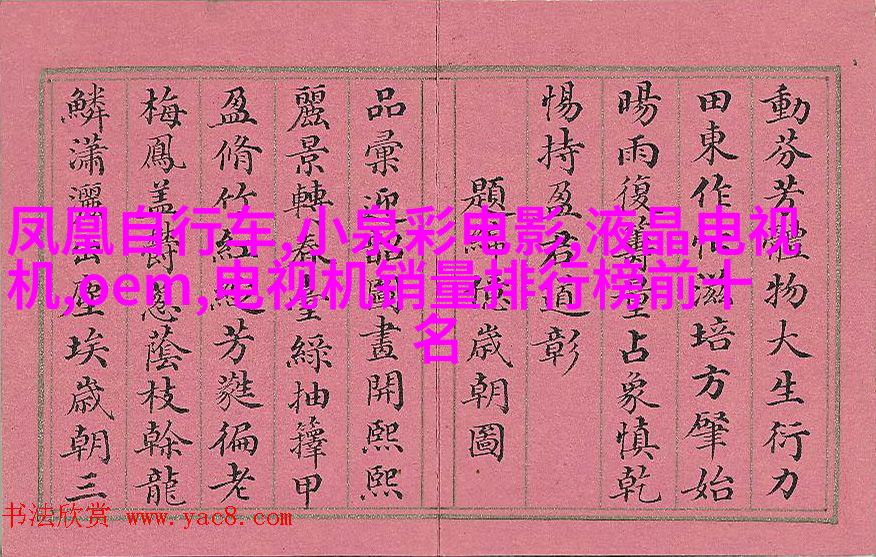 凤凰自行车,小泉彩电影,液晶电视
机,oem,电视机销量排行榜前十
名
動芬芳物大生衍力
田東作滋培方肇始
暘雨復占象慎乾
惕持盈君道彰
題歲朝圖
品彙迎圖畫開熙熙
麗景轉春臺綠抽籜甲
盈脩竹紅芳蕤徧老
梅鳳蓋蔭枝榦龍
鱗瀟灑塵埃歲朝三
书法欣赏 www.yac8.com